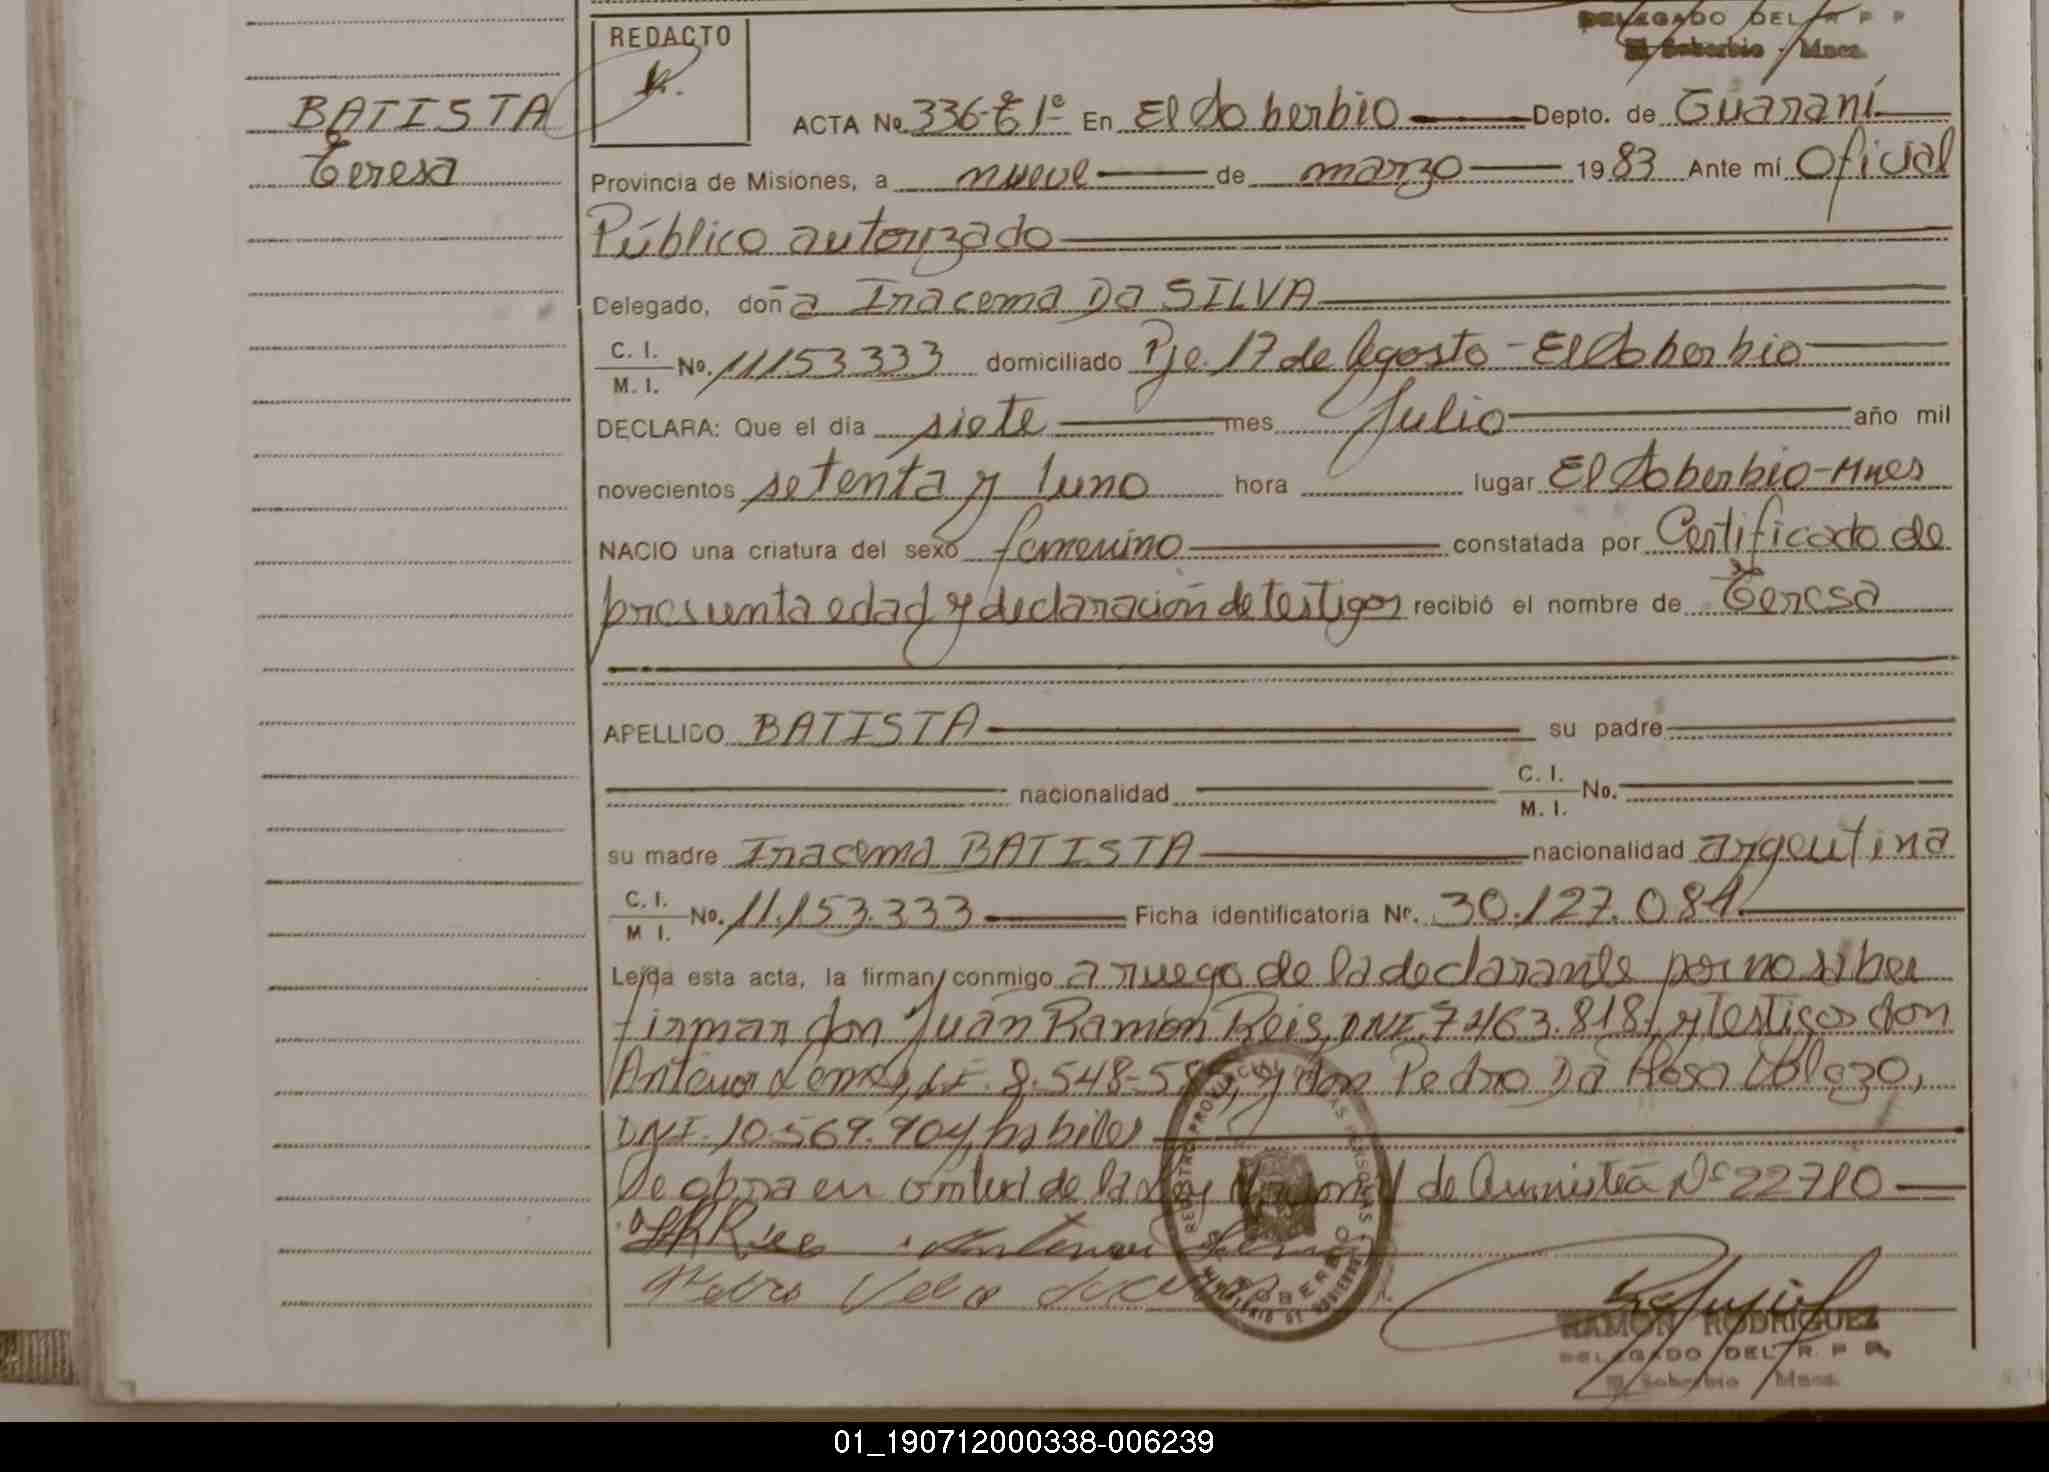 DELEGADO DEL R P P
El Soberbio - Mnes.
REDACTO
BATISTA
Teresa
ACTA No. 336-T 1º En El Soberbio Depto. de Guaraní
Provincia de Misiones, a nueve de marzo 1983 Ante mí Oficial
Público autorizado
Delegado, doña Iracema Da SILVA
C. I.
M. I. No. 11153333 domiciliado Pje. 17 de Agosto - El Soberbio
DECLARA: Que el día siete mes Julio año mil
novecientos setenta y uno hora lugar El Soberbio-Mnes
NACIO una criatura del sexo femenino constatada por Certificado de
presunta edad y declaración de testigos recibió el nombre de Teresa
APELLIDO BATISTA su padre
nacionalidad C. I.
M. I. No.
su madre Iracema BATISTA nacionalidad argentina
C. I.
M I. No. 11.153.333 Ficha identificatoria Nº. 30.127.084
Leída esta acta, la firman conmigo a ruego de la declarante por no saber
firmar don Juan Ramón Reis, DNI. 7463.818, y testigos don
Antenor Lemes, LE. 8.548-5 y don Pedro Da Rosa
DNI. 10.569.904, hábiles
Se obra en virtud de la Ley Nacional de Amnistía Nº 22710
REGISTRO PROVINCIAL DE LAS PERSONAS
MINISTERIO DE GOBIERNO
SOBERBIO
RAMON RODRIGUEZ
DELEGADO DEL R P P.
El Soberbio Mnes.
01_190712000338-006239